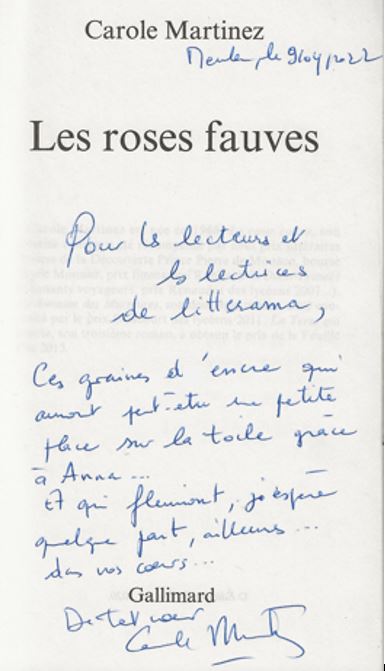 Carole Martinez
Meulan, le 9/04/2022
Les roses fauves
Pour les lecteurs et
les lectrices
de litterama,
Ces graines d'encre qui
auront peut-être une petite
place sur la toile grâce
à Anna...
Et qui fleuriront, j'espère
quelque part, ailleurs...
dans vos cœurs...
Gallimard
De tout cœur
Carole Martinez